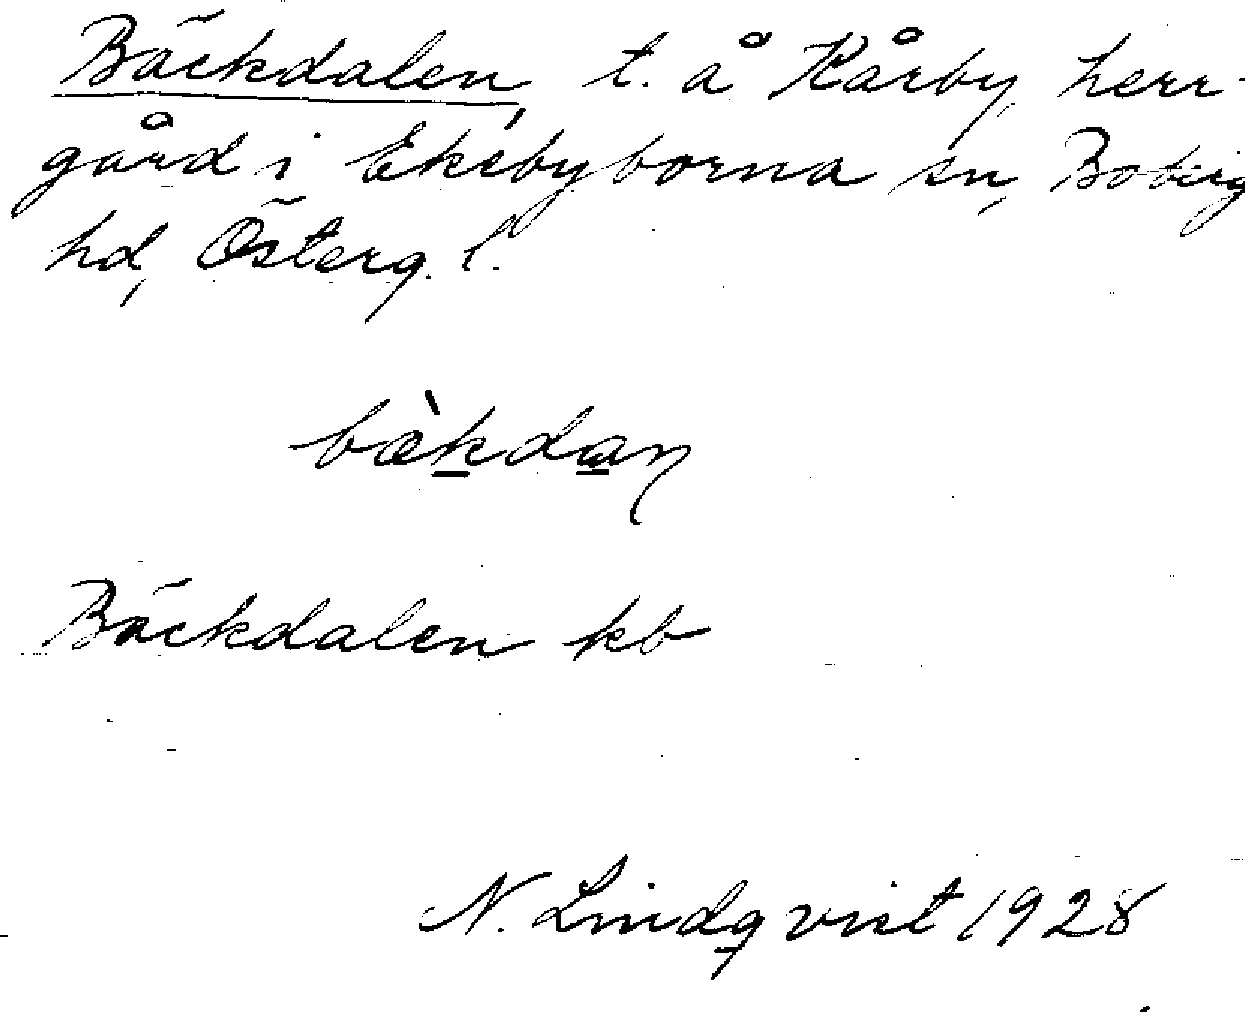 Bäckdalen, t. å Kårby, herr-
gård i Ekebyborna sn, Boberg
hd, Österg. l.
bæ̀kdaṇ
Bäckdalen kb
N. Lindqvist 1928